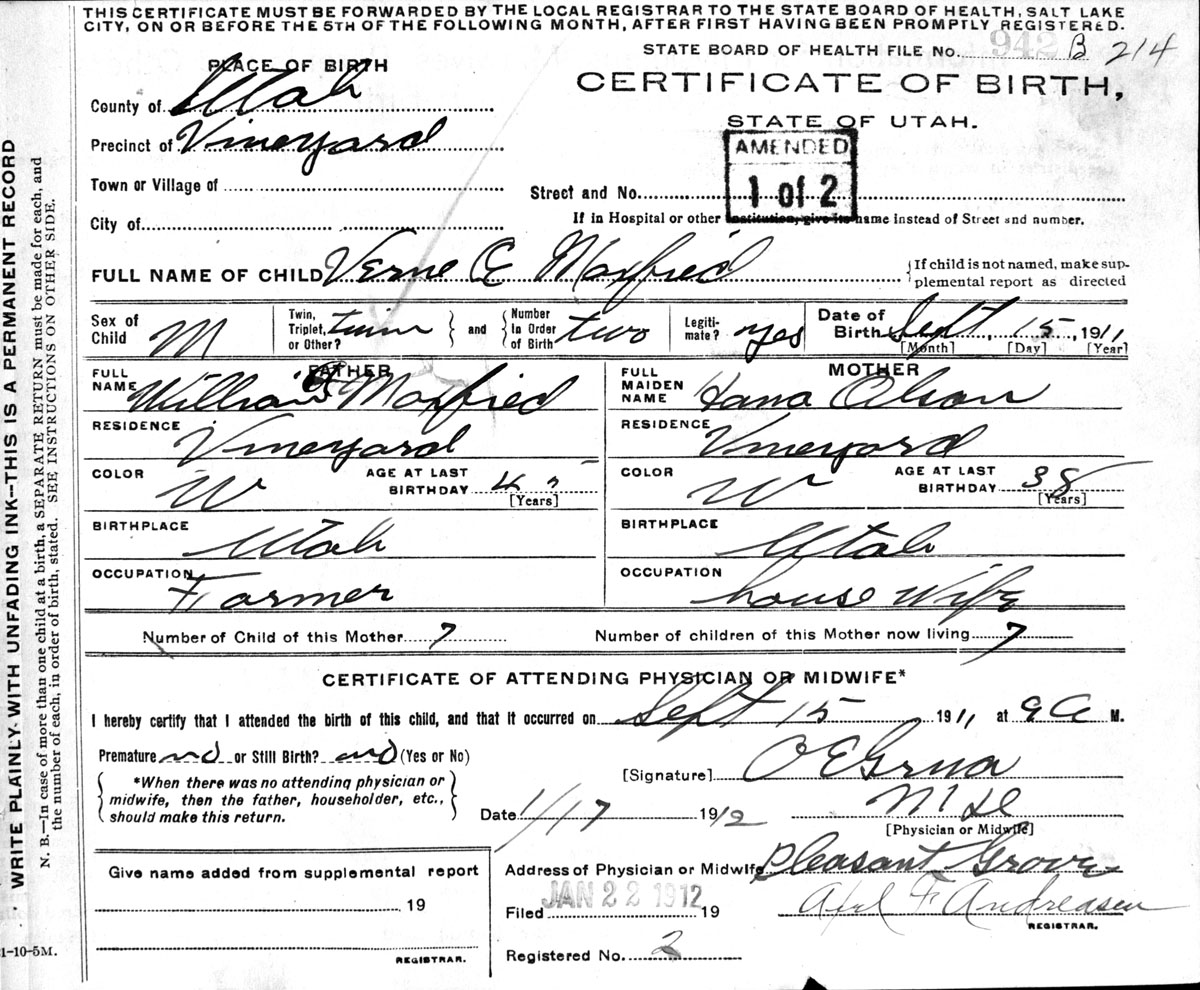 THIS CERTIFICATE MUST BE FORWARDED BY THE LOCAL REGISTRAR TO THE STATE BOARD OF HEALTH, SALT LAKE
CITY, ON OR BEFORE THE 5TH OF THE FOLLOWING MONTH, AFTER FIRST HAVING BEEN PROMPTLY REGISTERED.
STATE BOARD OF HEALTH FILE No. 942 B 214
PLACE OF BIRTH
CERTIFICATE OF BIRTH,
STATE OF UTAH.
County of Utah
Precinct of Vineyard
AMENDED
1 of 2
Town or Village of
Street and No.
City of
If in Hospital or other Institution, give its name instead of Street and number.
FULL NAME OF CHILD Verne E Maxfield
If child is not named, make sup-
plemental report as directed
Sex of Child M
Twin, Triplet, or Other? twin
and
Number In Order of Birth two
Legiti-mate? yes
Date of Birth Sept 15, 1911
[Month] [Day] [Year]
FATHER
FULL NAME William Maxfied
RESIDENCE Vineyard
COLOR W
AGE AT LAST BIRTHDAY 4
[Years]
BIRTHPLACE Utah
OCCUPATION Farmer
MOTHER
FULL MAIDEN NAME Hana Olson
RESIDENCE Vineyard
COLOR W
AGE AT LAST BIRTHDAY 38
[Years]
BIRTHPLACE Utah
OCCUPATION house wife
Number of Child of this Mother 7
Number of children of this Mother now living 7
CERTIFICATE OF ATTENDING PHYSICIAN OR MIDWIFE*
I hereby certify that I attended the birth of this child, and that it occurred on Sept 15 1911 at 9 A M.
Premature no or Still Birth? no (Yes or No)
*When there was no attending physician or
midwife, then the father, householder, etc.,
should make this return.
[Signature] O E Grua
M D
[Physician or Midwife]
Date 1/17 1912
Address of Physician or Midwife Pleasant Grove
Filed JAN 22 1912 19
Axel F Andreasen
REGISTRAR.
Registered No. 2
Give name added from supplemental report
19
REGISTRAR.
WRITE PLAINLY WITH UNFADING INK--THIS IS A PERMANENT RECORD
N. B.—In case of more than one child at a birth, a SEPARATE RETURN must be made for each, and
the number of each, in order of birth, stated. SEE INSTRUCTIONS ON OTHER SIDE.
1-10-5M.